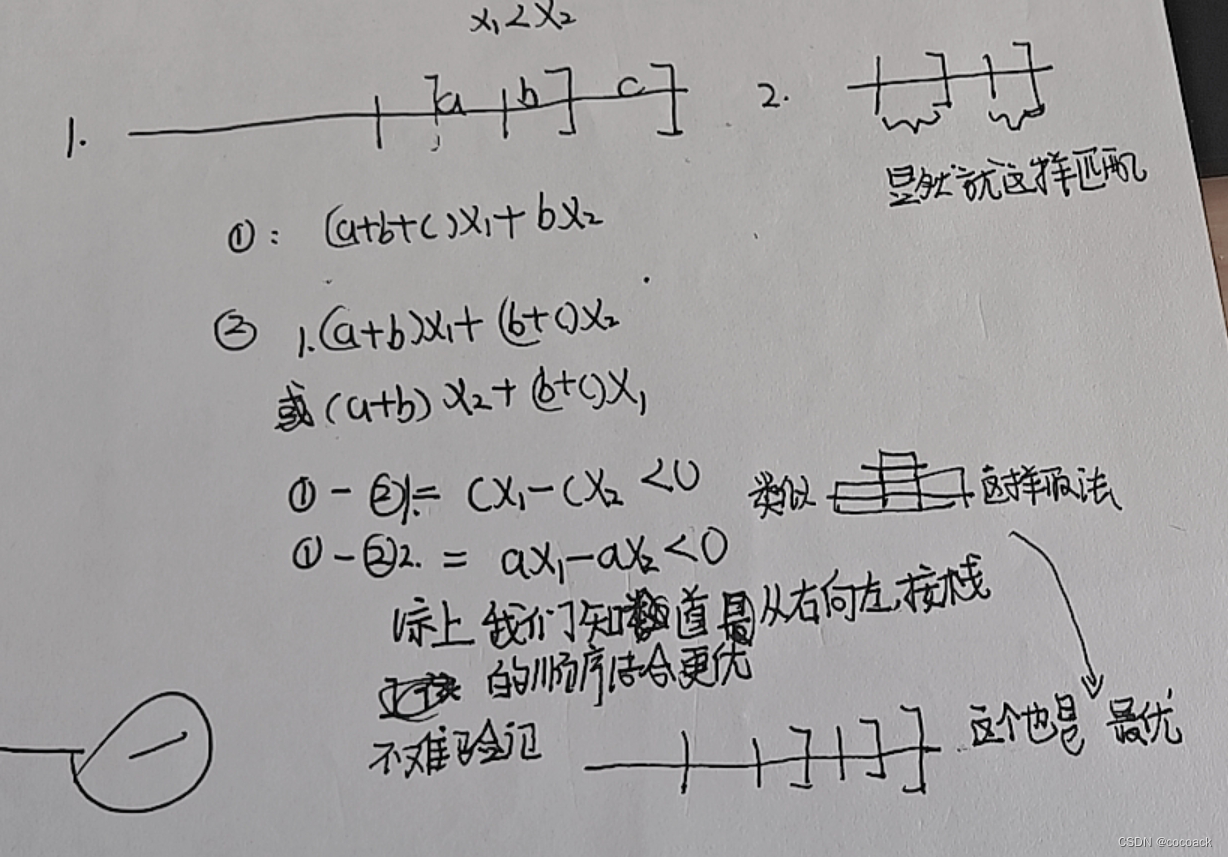 x₁<x₂
1. a b c
2.
显然就这样匹配
①: (a+b+c)x₁+bx₂
② 1.(a+b)x₁+(b+c)x₂
或(a+b)x₂+(b+c)x₁
①-②1= cx₁-cx₂<0
类似 这样取法
①-②2.= ax₁-ax₂<0
综上我们知道是从右向左,按栈
的顺序结合更优
这个也是最优
不难验证
CSDN @cocoack